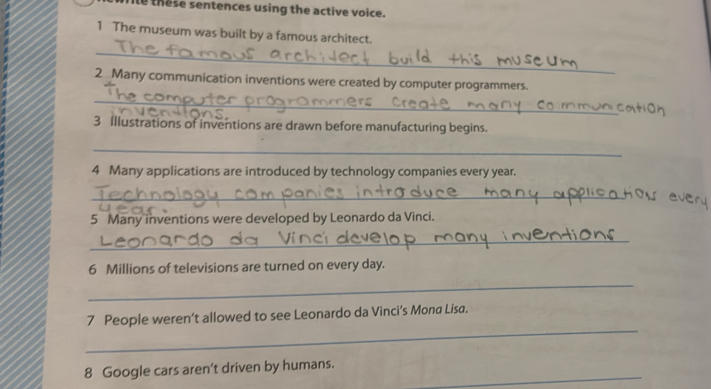 these sentences using the active voice.
1 The museum was built by a famous architect.
The famous architect build this museum
2 Many communication inventions were created by computer programmers.
The computer programmers create many communication
inventions.
3 Illustrations of inventions are drawn before manufacturing begins.
4 Many applications are introduced by technology companies every year.
Technology companies introduce many applications every
year.
5 Many inventions were developed by Leonardo da Vinci.
Leonardo da Vinci develop many inventions
6 Millions of televisions are turned on every day.
7 People weren't allowed to see Leonardo da Vinci's Mona Lisa.
8 Google cars aren't driven by humans.